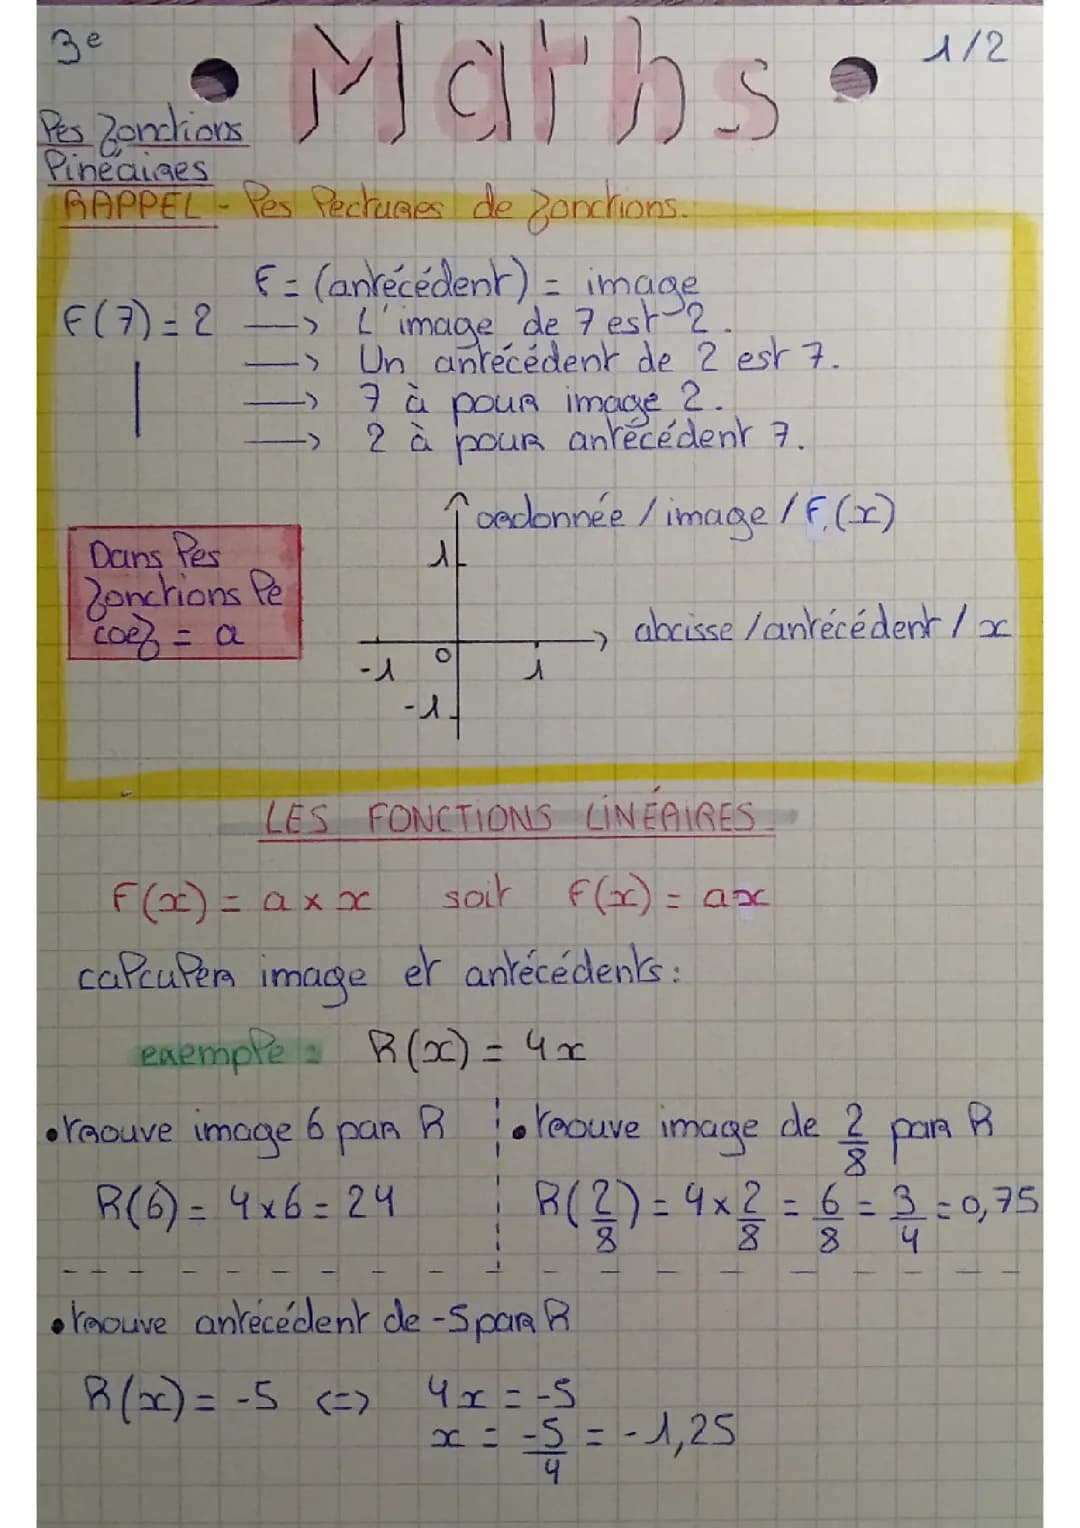 3e
Maths
1/2
Les fonctions
linéaires
RAPPEL - les lectures de fonctions.
F = (antécédent) = image
F(7) = 2 —> L'image de 7 est 2.
—> Un antécédent de 2 est 7.
—> 7 à pour image 2.
—> 2 à pour antécédent 7.
ordonnée / image / F(x)
1
Dans les
fonctions le
coef = a
abcisse / antécédent / x
-1 0 1
-1
LES FONCTIONS LINÉAIRES
F(x) = a x x soit F(x) = ax
calculer image et antécédents :
exemple : R(x) = 4x
• trouve image 6 par R
R(6) = 4x6 = 24
• trouve image de 2/8 par R
R(2/8) = 4x2/8 = 6/8 = 3/4 = 0,75
• trouve antécédent de -5 par R
R(x) = -5 <=> 4x = -5
x = -5/4 = -1,25